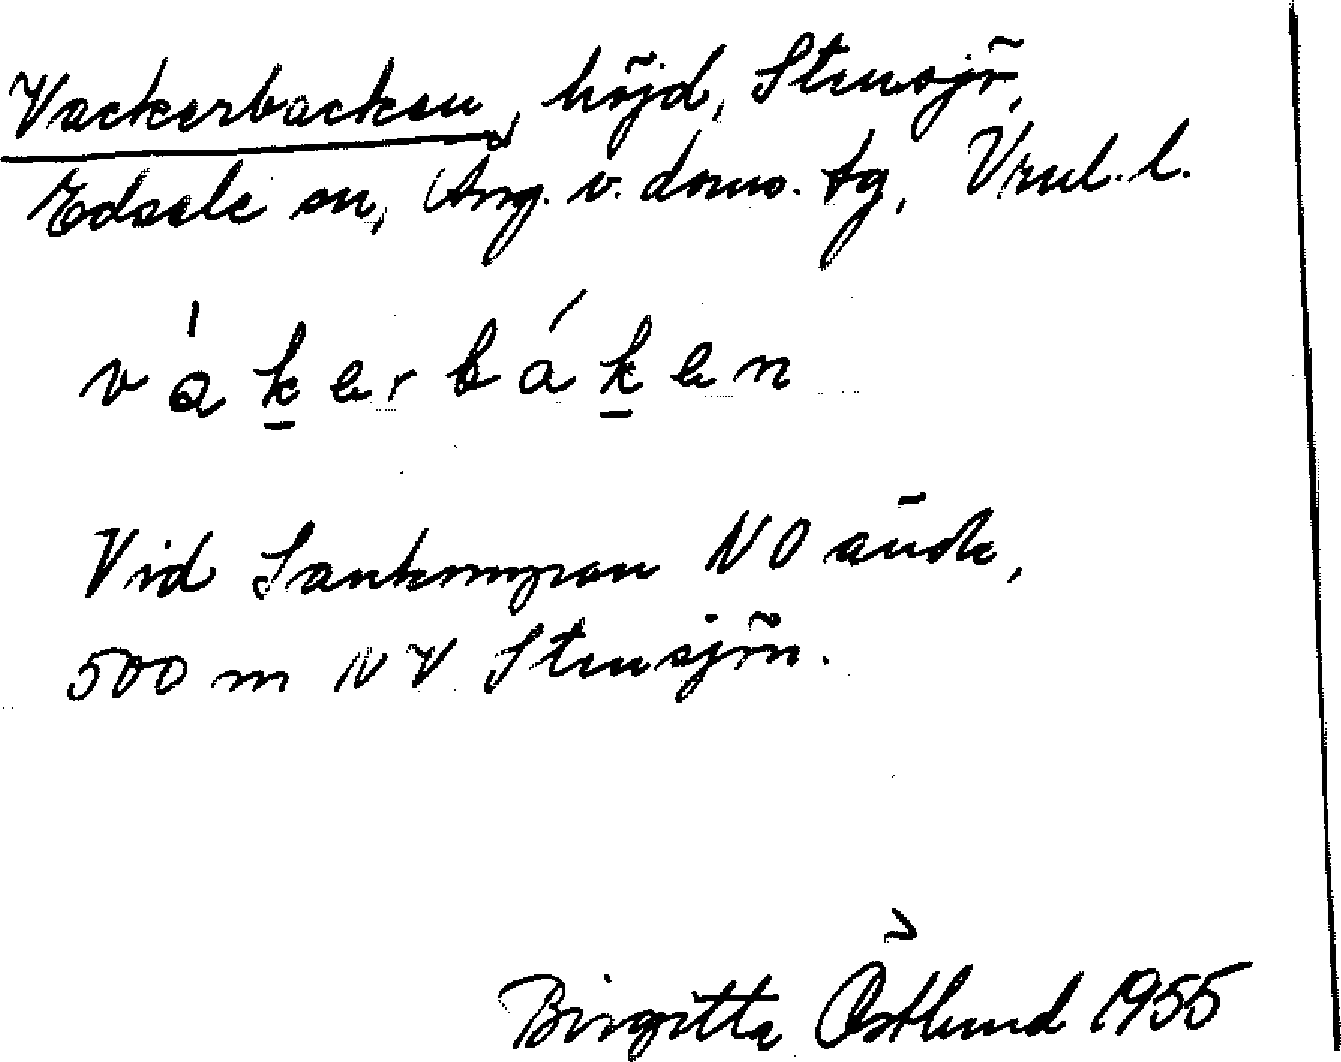 Vackerbacken, höjd, Stensjö,
Edsele sn, Ång. v. doms. tg, Vnl. l.
vákerbáken
Vid NO ände,
500 m NV Stensjön.
Birgitta Östlund 1955